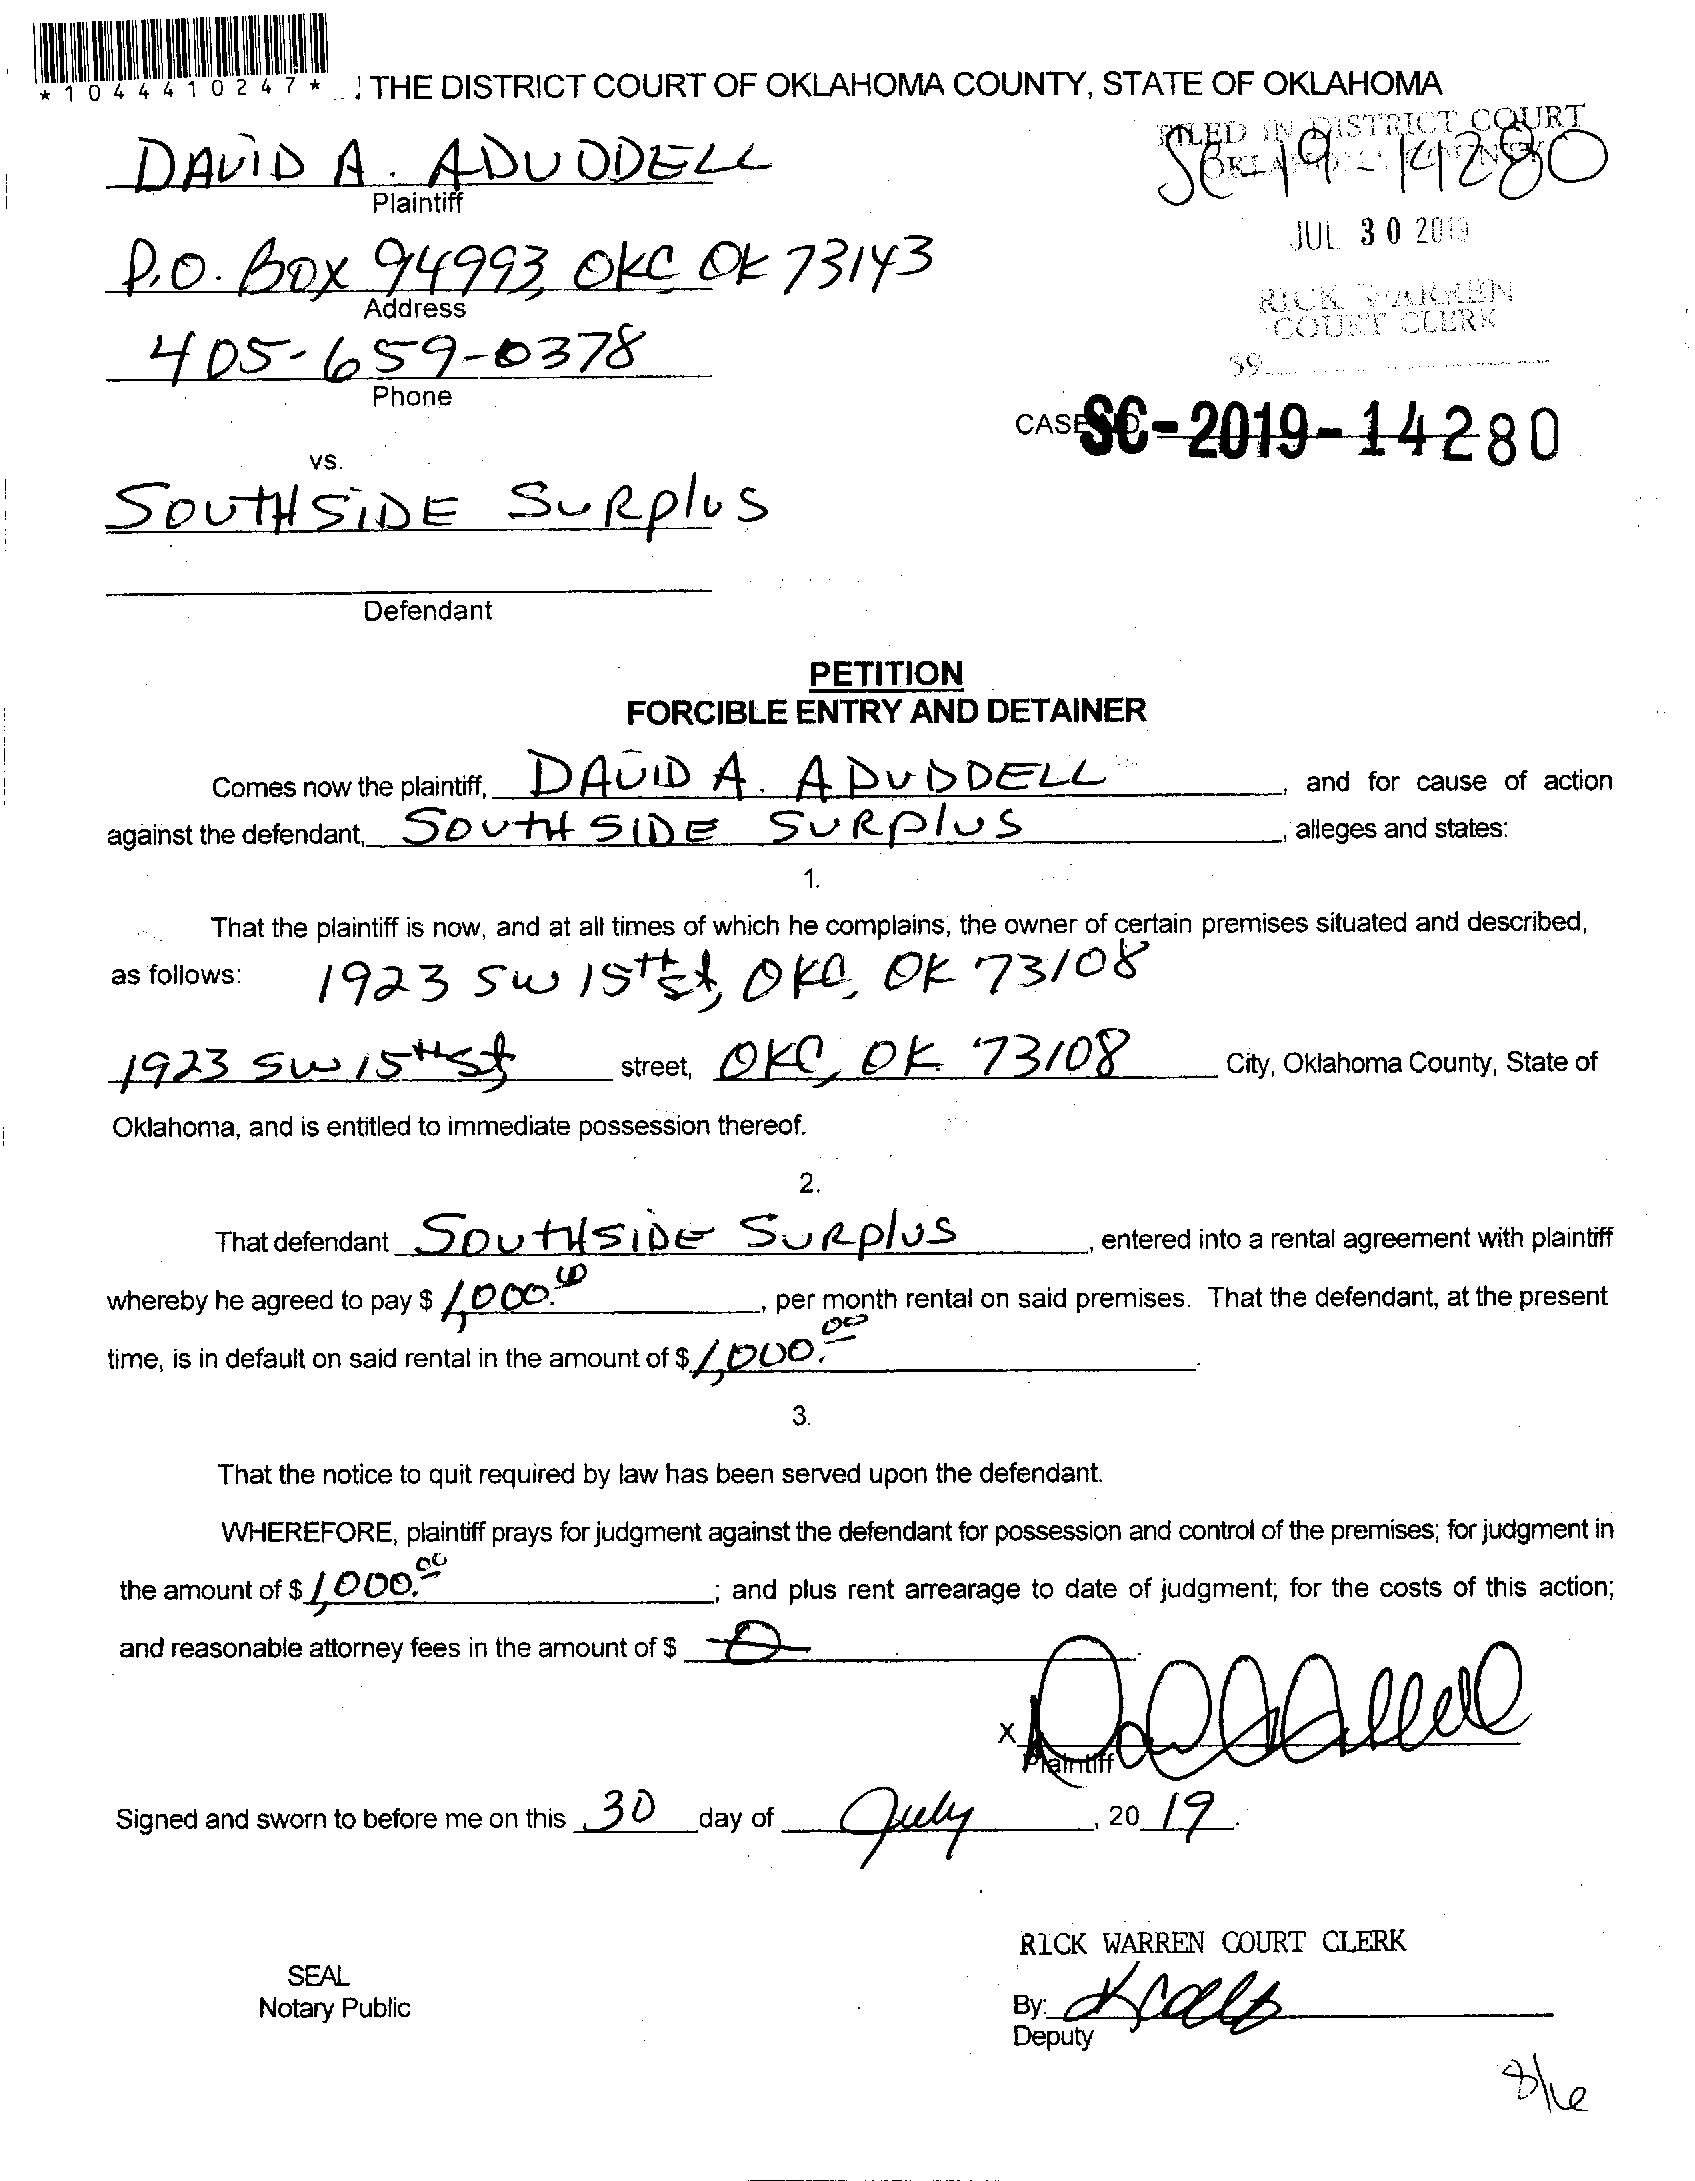 *1044410247* THE DISTRICT COURT OF OKLAHOMA COUNTY, STATE OF OKLAHOMA
FILED IN DISTRICT COURT
SC-19-14280
DAVID A. ADUDDELL
Plaintiff
JUL 30 2019
P.O. Box 94993, OKC OK 73143
Address
RICK WARREN
COURT CLERK
405-659-0378
Phone
39
CASE SC-2019-14280
vs.
SOUTHSIDE SURplus
Defendant
PETITION
FORCIBLE ENTRY AND DETAINER
Comes now the plaintiff, DAVID A. ADUDDELL, and for cause of action
against the defendant, SOUTHSIDE SURplus, alleges and states:
1.
That the plaintiff is now, and at all times of which he complains, the owner of certain premises situated and described,
as follows: 1923 SW 15TH St, OKC, OK 73108
1923 SW 15TH St street, OKC, OK 73108 City, Oklahoma County, State of
Oklahoma, and is entitled to immediate possession thereof.
2.
That defendant SOUTHSIDE SURplus, entered into a rental agreement with plaintiff
whereby he agreed to pay $ 1,000.00, per month rental on said premises. That the defendant, at the present
time, is in default on said rental in the amount of $ 1,000.00.
3.
That the notice to quit required by law has been served upon the defendant.
WHEREFORE, plaintiff prays for judgment against the defendant for possession and control of the premises; for judgment in
the amount of $ 1,000.00; and plus rent arrearage to date of judgment; for the costs of this action;
and reasonable attorney fees in the amount of $ 0.
X
Plaintiff
Signed and sworn to before me on this 30 day of July, 2019.
RICK WARREN COURT CLERK
SEAL
Notary Public
By:
Deputy
8/16